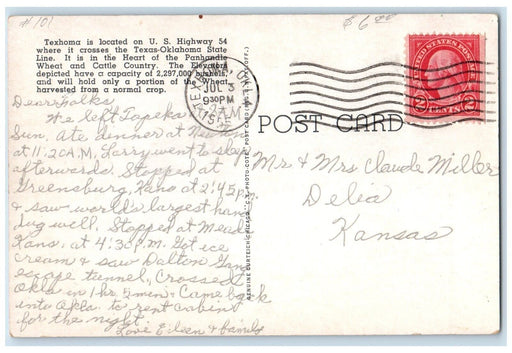 #101
$6.00
Texhoma is located on U. S. Highway 54
where it crosses the Texas-Oklahoma State
Line. It is in the Heart of the Panhandle
Wheat and Cattle Country. The Elevators
depicted have a capacity of 2,297,000 bushels,
and will hold only a portion of the Wheat
harvested from a normal crop.
JUL 3
930PM
UNITED STATES POSTAGE
2 CENTS 2
POST CARD
GENUINE CURTEICH-CHICAGO "C.T. PHOTO-COTE" POST CARD (REG. U.S. PAT. OFF.)
Dear Folks,
We left Topeka
Sun. Ate dinner at
at 11:20 A.M. Larry went to sleep
afterwards. Stopped at
Greensburg, Kans at 2:45 p.m.
& saw world's largest hand
dug well. Stopped at Meade
Kans. at 4:30 P.M. Got ice
cream & saw Dalton Gang
escape tunnel. Crossed
Okla in 1 hr. 5 min & came back
into Okla to rent cabin
for the night.
Love Eileen & family
Mr & Mrs Claude Miller
Delia
Kansas